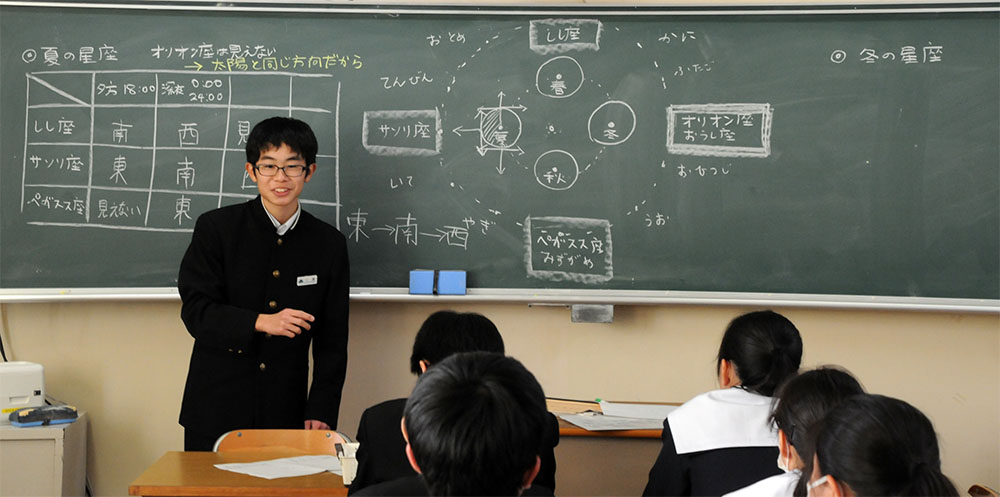 ◎夏の星座
オリオン座は見えない
→太陽と同じ方向だから
夕方 18:00
深夜 0:00
24:00
しし座 南 西 見
サソリ座 東 南
ペガスス座 見えない 東
東→南→西
おとめ
しし座
かに
てんびん
ふたご
春
サソリ座
夏
冬
オリオン座
おうし座
秋
いて
おひつじ
やぎ
うお
ペガスス座
みずがめ
◎冬の星座